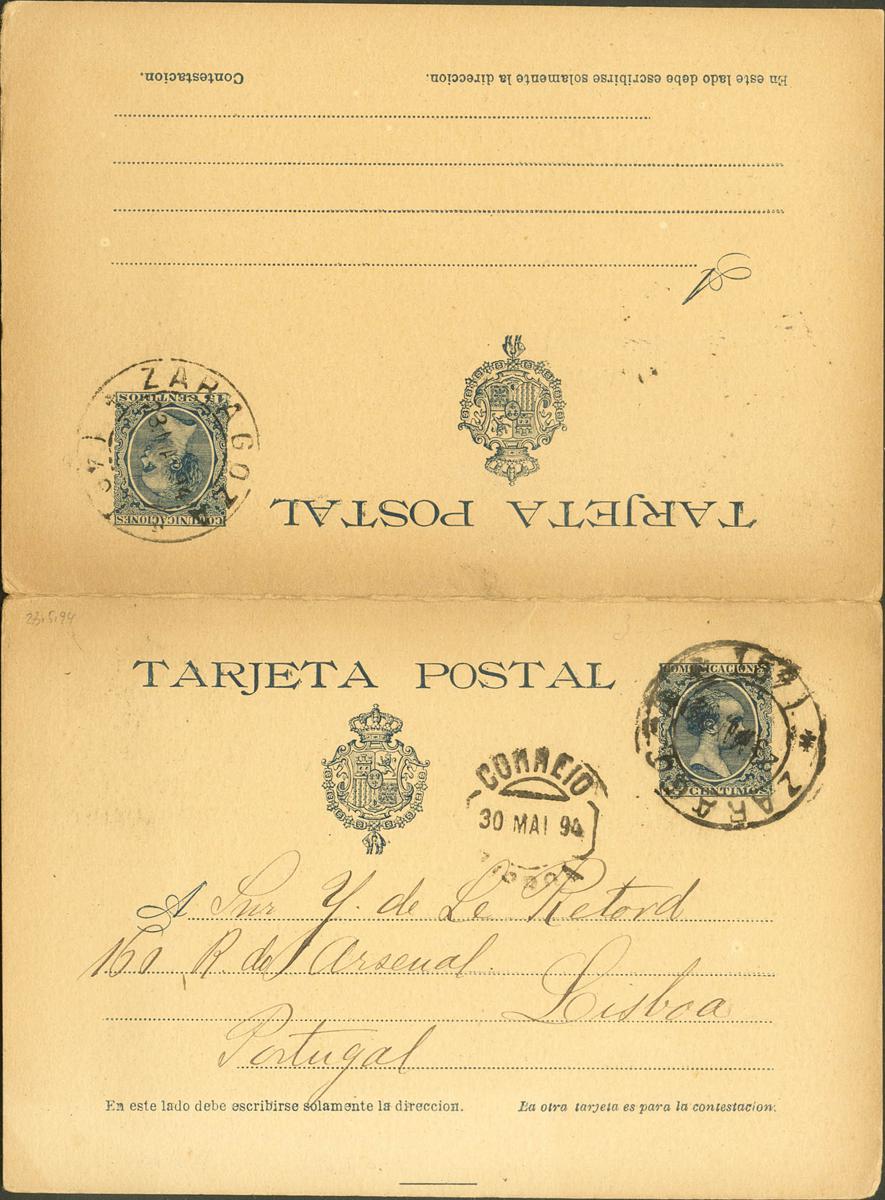 Contestacion.
En este lado debe escribirse solamente la direccion.
A
15 CENTIMOS
COMUNICACIONES
ZARAGOZA
TARJETA POSTAL
23.5.94
TARJETA POSTAL
COMUNICACIONES
CENTIMOS
ZARAGOZA
CORREIO
30 MAI 94
A Snr Y. de Le Retord
161 R. do Arsenal
Lisboa
Portugal
En este lado debe escribirse solamente la direccion.
La otra tarjeta es para la contestacion.